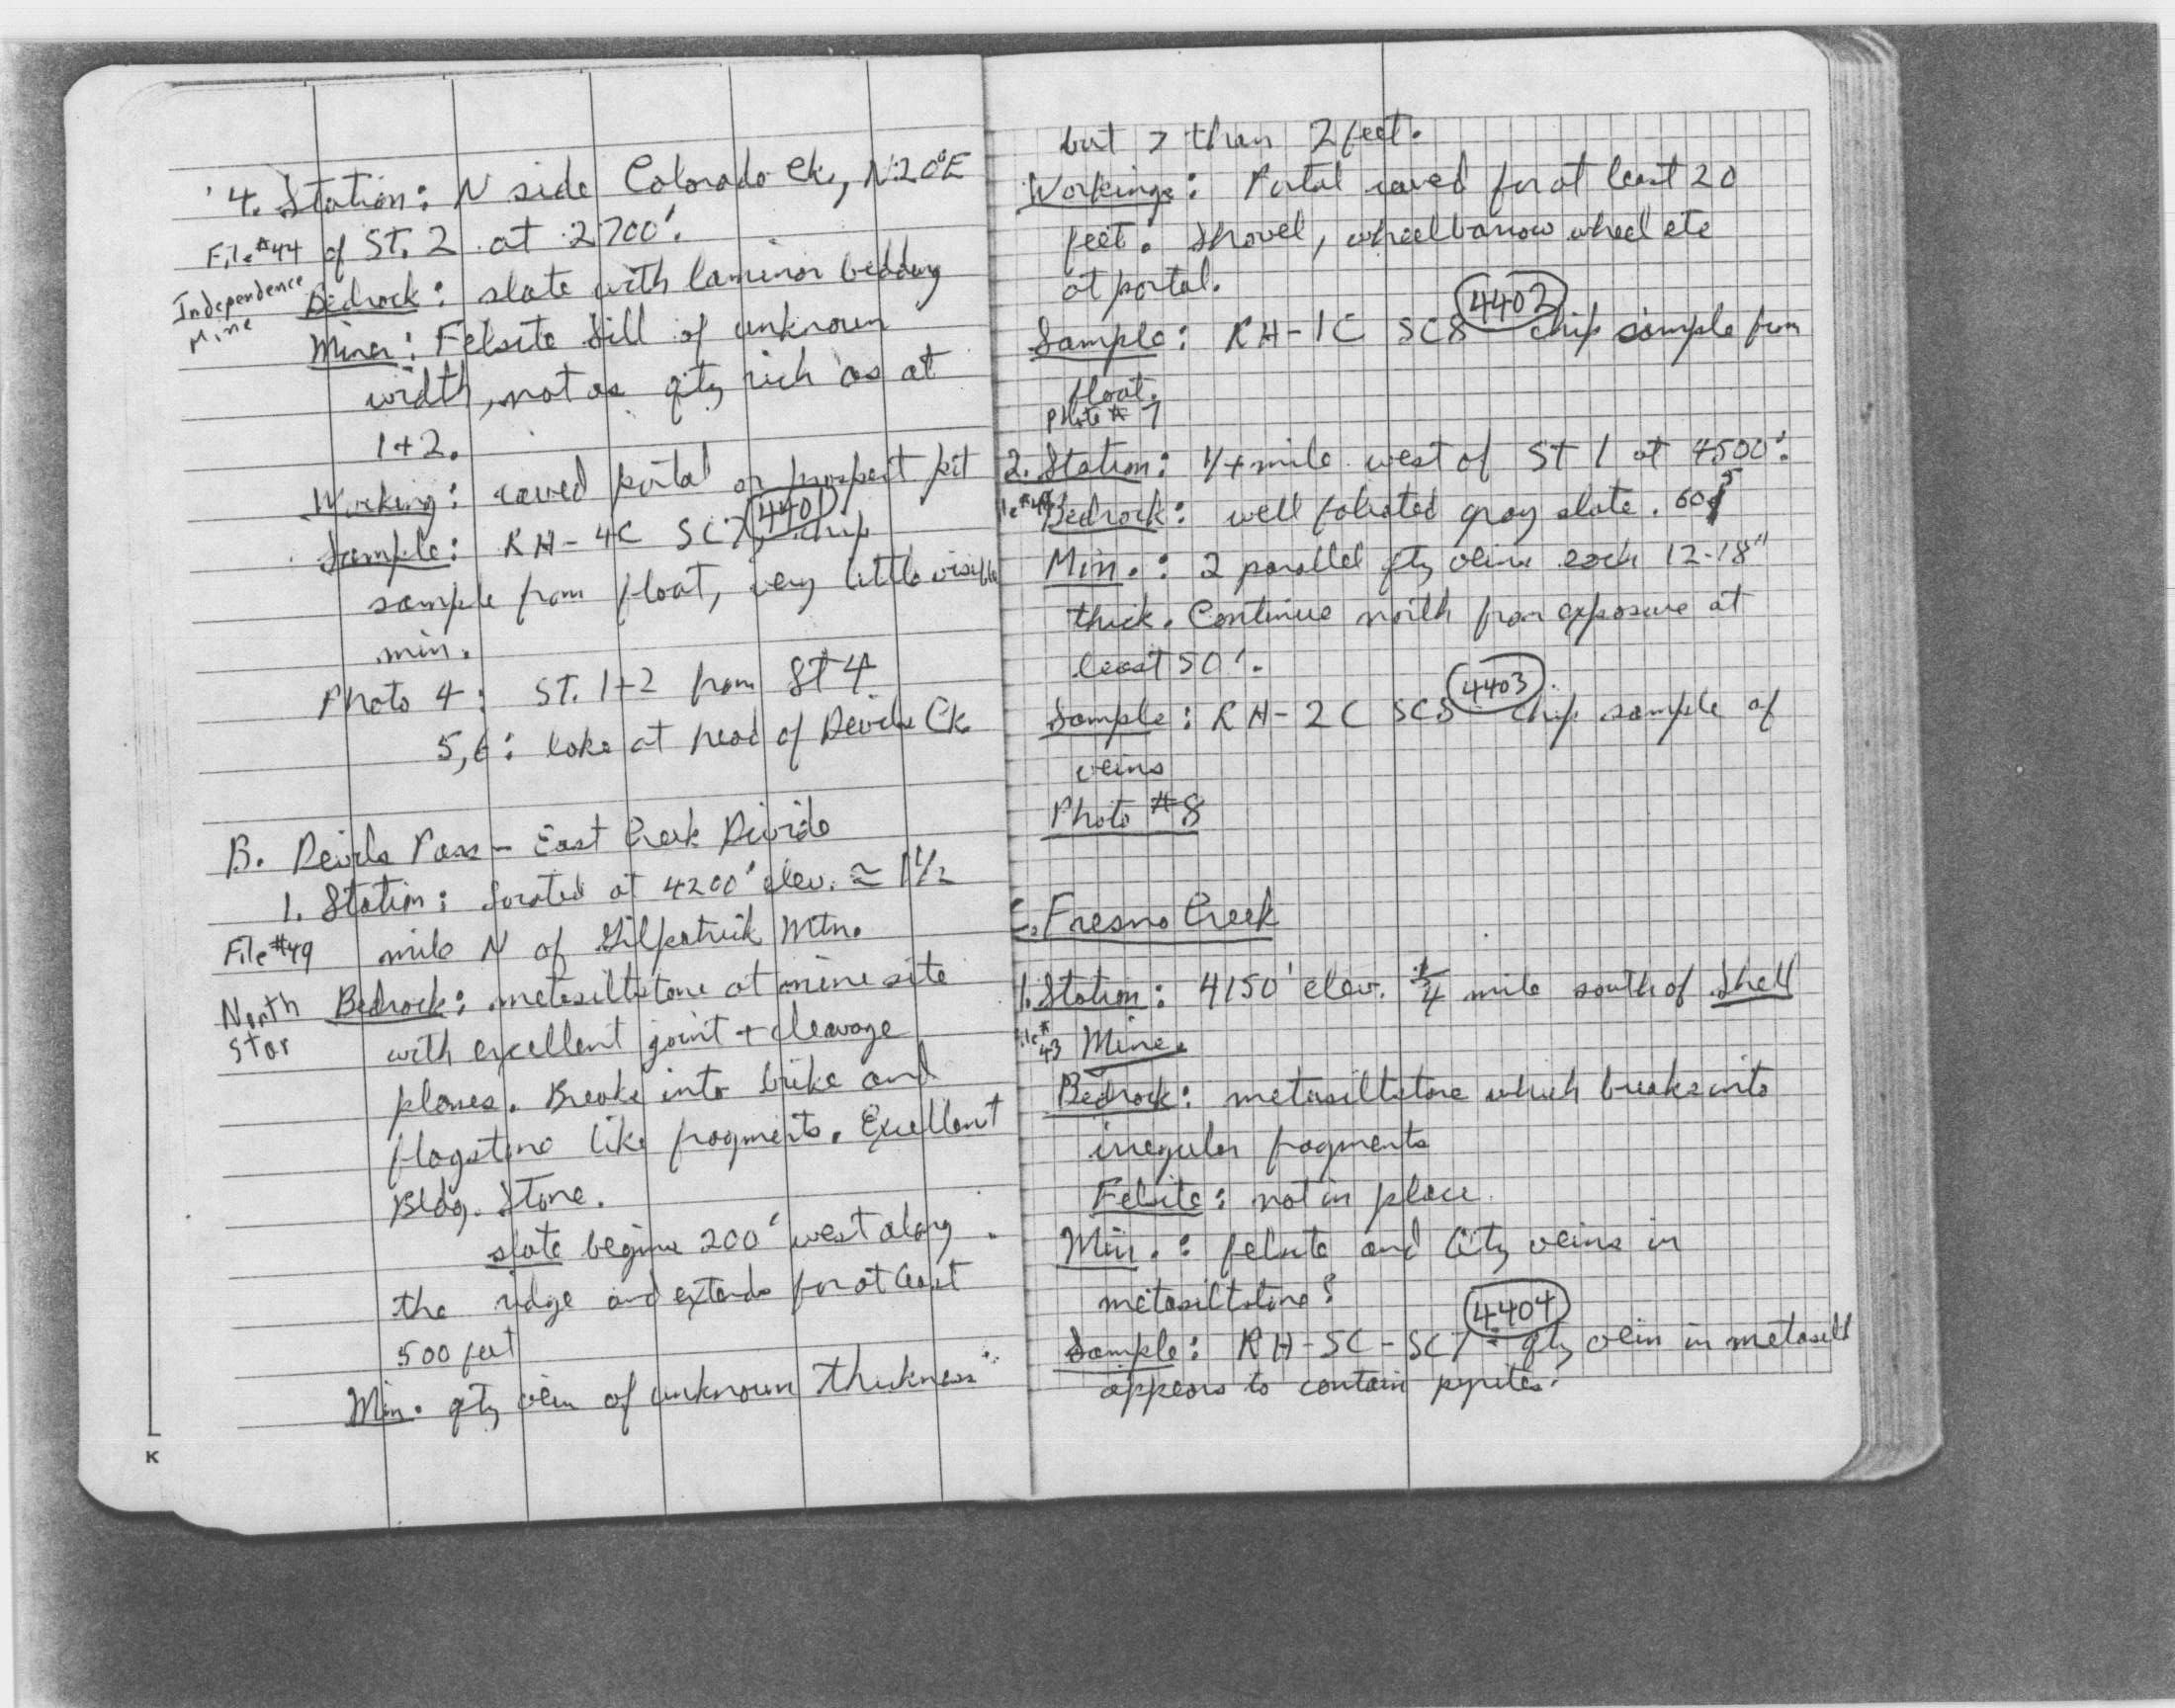 4. Station: N side Colorado Ck, N20°E
File #44 of ST. 2 at 2700'.
Independence Mine
Bedrock: slate with laminar bedding
Miner: Felsite Sill of unknown
width, not as qtz rich as at
1+2.
Working: caved portal or prospect pit
4401
Sample: RH-4C SC7, chip
sample from float, very little visible
min.
Photo 4: ST. 1+2 from ST 4
5,6: lake at head of Devils Ck
B. Devils Pass - East Creek Divide
1. Station: Located at 4200' elev. ≃ 1 1/2
File #49 mile N of Gilpatrick Mtn.
North Star
Bedrock: metasiltstone at mine site
with excellent joint + cleavage
planes. Breaks into briks and
flagstone like fragments. Excellent
Bldg. Stone.
slate begins 200' west along
the ridge and extends for at least
500 feet
Min. qtz vein of unknown thickness
but > than 2 feet.
Workings: Portal caved for at least 20
feet. Shovel, wheelbarrow wheel etc
at portal.
4402
Sample: RH-1C SC8 chip sample from
float.
Photo # 7
2. Station: 1/4 mile west of ST 1 at 4500'.
Bedrock: well foliated gray slate.
Min.: 2 parallel qtz veins each 12-18"
thick. Continue north from exposure at
least 50'.
4403
Sample: RH-2C SC8 chip sample of
veins
Photo #8
C. Fresno Creek
1. Station: 4150' elev. 1/4 mile south of Shell
#43 Mine.
Bedrock: metasiltstone which breaks into
irregular fragments
Felsite: not in place.
Min.: felsite and Qtz veins in
metasiltstone?
4404
Sample: RH-5C-SC7: qtz vein in metasilt
appears to contain pyrites.
K